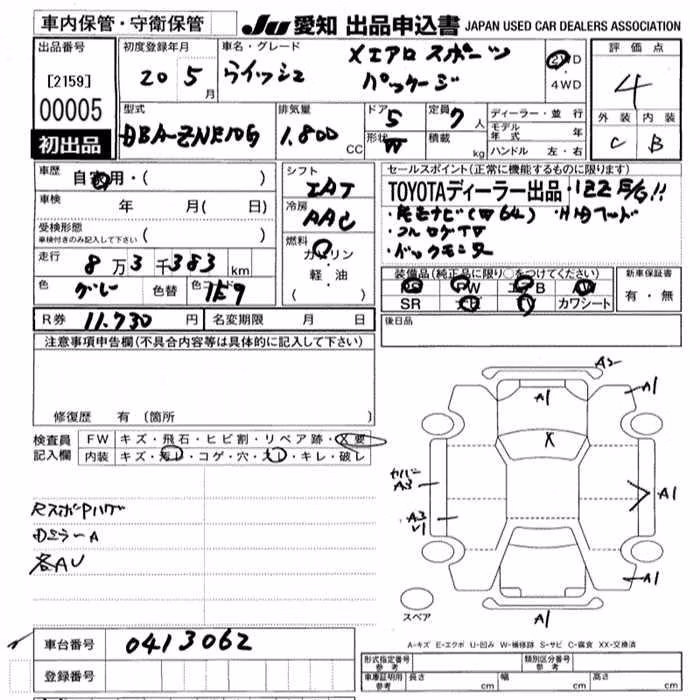 車内保管・守衛保管 JU 愛知 出品申込書 JAPAN USED CAR DEALERS ASSOCIATION
出品番号 初度登録年月 車名・グレード 評価点
[2159] 20 5月 ウイッシュ Xエアロスポーツ パッケージ 2WD ・4WD 4
00005
初出品
型式 排気量 ドア 定員 ディーラー・並行 外装 内装
DBA-ZNE10G 1.800 CC 5 7人 モデル年式 年 C B
形状 W 積載 kg ハンドル 左・右
車歴 自家用・( ) シフト IAT セールスポイント(正常に機能するものに限ります)
車検 年 月( 日) 冷房 AAC TOYOTAディーラー出品・1ZZ
受検形態 車検付きのみ記入して下さい ( ) ・純正ナビ(W64)
・フルセグTV
・バックモニター
走行 8万3千383km 燃料 ガソリン 軽・油 ( )
色 グレー 色替 カラーNo 1E9
装備品(純正品に限り○をつけてください) 新車保証書
PS PW エアB AW
SR カワシート 有・無
R券 11.730円 名変期限 月 日 後日品
注意事項申告欄(不具合内容等は具体的に記入して下さい)
修復歴 有 (箇所 )
検査員記入欄 FW キズ・飛石・ヒビ割・リペア跡・X要
内装 キズ・汚レ・コゲ・穴・スレ・キレ・破レ
A2
A1
A1
X
カバー A3
A1
A3 U1
A1
A1
RスポーPハゲ
DミラーA
各AU
スペア
A-キズ E-エクボ U-凹み W-補修跡 S-サビ C-腐食 XX-交換済
車台番号 0413062
登録番号
形式指定番号 参考 類別区分番号 参考
車庫証明用 参考 長さ 幅 高さ